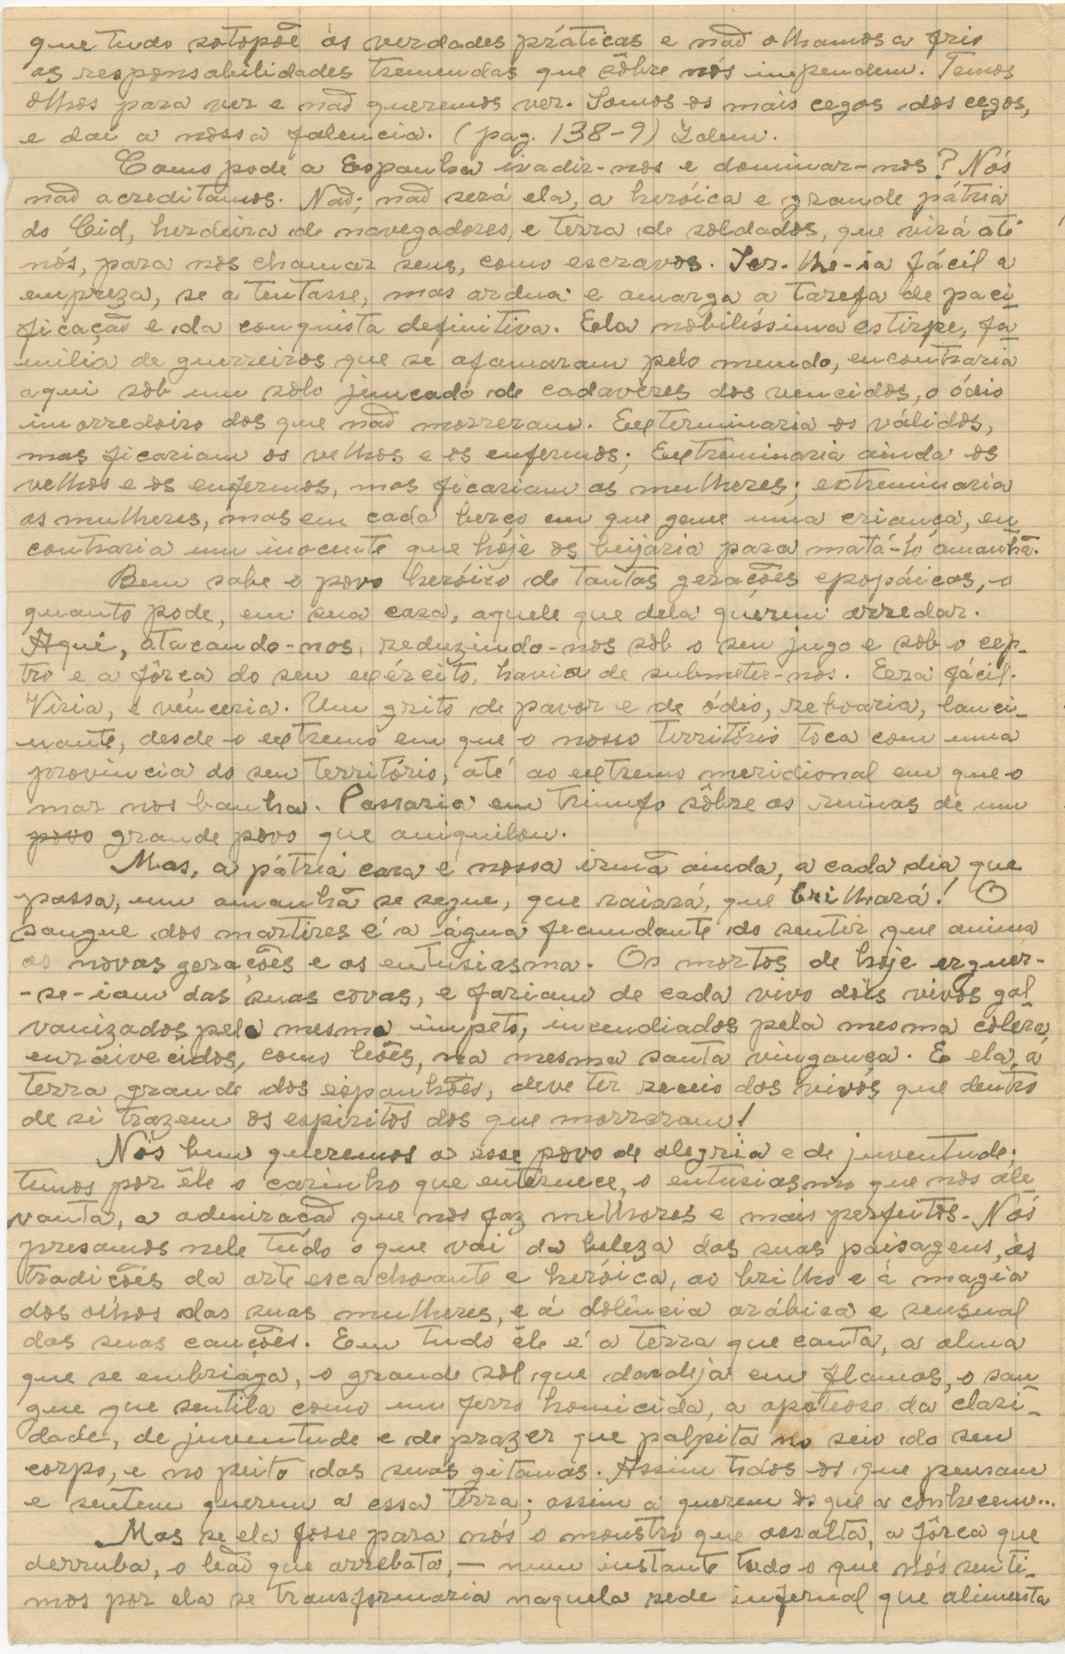 que tudo sotopõe às verdades práticas e não olhamos a frio
as responsabilidades tremendas que sôbre nós impendem. Temos
olhos para ver e não queremos ver. Somos os mais cegos dos cegos,
e daí a nossa falencia. (pag. 138-9) Idem.
Como pode a Espanha ivadir-nos e dominar-nos? Nós
não acreditamos. Não; não será ela, a heróica e grande pátria
do Cid, herdeira de navegadores, e terra de soldados, que virá até
nós, para nos chamar seus, como escravos. Ser-lhe-ia fácil a
empreza, se a tentasse, mas ardua e amarga a tarefa de paci
ficação e da conquista definitiva. Ela nobilíssima estirpe, fa
milia de guerreiros que se afamaram pelo mundo, encontraria
aqui sob um solo juncado de cadavéres dos vencidos, o ódio
imorredoiro dos que não morreram. Exterminaria os válidos,
mas ficariam os velhos e os enfermos; Extreminaria ainda os
velhos e os enfermos, mas ficariam as mulheres; extreminaria
as mulheres, mas em cada berço em que geme uma criança, en
contraria um inocente que hoje os beijaria para matá-lo amanhã.
Bem sabe o povo heróico de tantas gerações epopáicas, o
quanto pode, em sua casa, aquele que dela querem arredar.
Aqui, atacando-nos, reduzindo-nos sob o seu jugo e sob o cep-
tro e a fôrça do seu exército, havia de submeter-nos. Era fácil.
Viria, e venceria. Um grito de pavor e de ódio, reboaria, lanci-
nante, desde o extremo em que o nosso território toca com uma
provincia do seu território, até ao extremo meridional em que o
mar nos banha. Passaria em triunfo sôbre as ruinas de um
povo grande povo que aniquilou.
Mas, a pátria cara é nossa irmã ainda, a cada dia que
passa, um amanhã se segue, que raiará, que brilhará! O
sangue dos martires é a água fecundante do sentir que anima
as novas gerações e as entusiasma. Os mortos de hoje erguer-
-se-iam das suas covas, e fariam de cada vivo dois vivos gal
vanizados pelo mesmo impeto, incendiados pela mesma cólera,
enràivecidos, como leões, na mesma santa vingança. E ela, a
terra grande dos espanhões, deve ter receio dos vivos que dentro
de si trazem os espiritos dos que morreram!
Nós bem queremos a esse povo de alegria e de juventude;
temos por êle o carinho que enternece, o entusiasmo que nos ale
vanta, a admiração que nos faz melhores e mais perfeitos. Nós
presamos nele tudo o que vai da beleza das suas paisagens, às
tradições da arte escachoante e heróica, ao brilho e á magia
dos olhos das suas mulheres, e á dolência arábica e sensual
das suas canções. Em tudo êle é a terra que canta, a alma
que se embriaga, o grande sol que dardeja em flamas, o san
gue que sentila como um ferro homicida, a apoteose da clari-
dade, de juventude e de prazer que palpita no seio do seu
corpo, e no peito das suas gitanas. Assim todos os que pensam
e sentem querem a essa terra; assim a querem os que a conhecem...
Mas se ela fosse para nós o monstro que assalta, a fôrça que
derruba, o leão que arrebata, — num instante tudo o que nós senti-
mos por ela se transformaria naquela sede infernal que alimenta